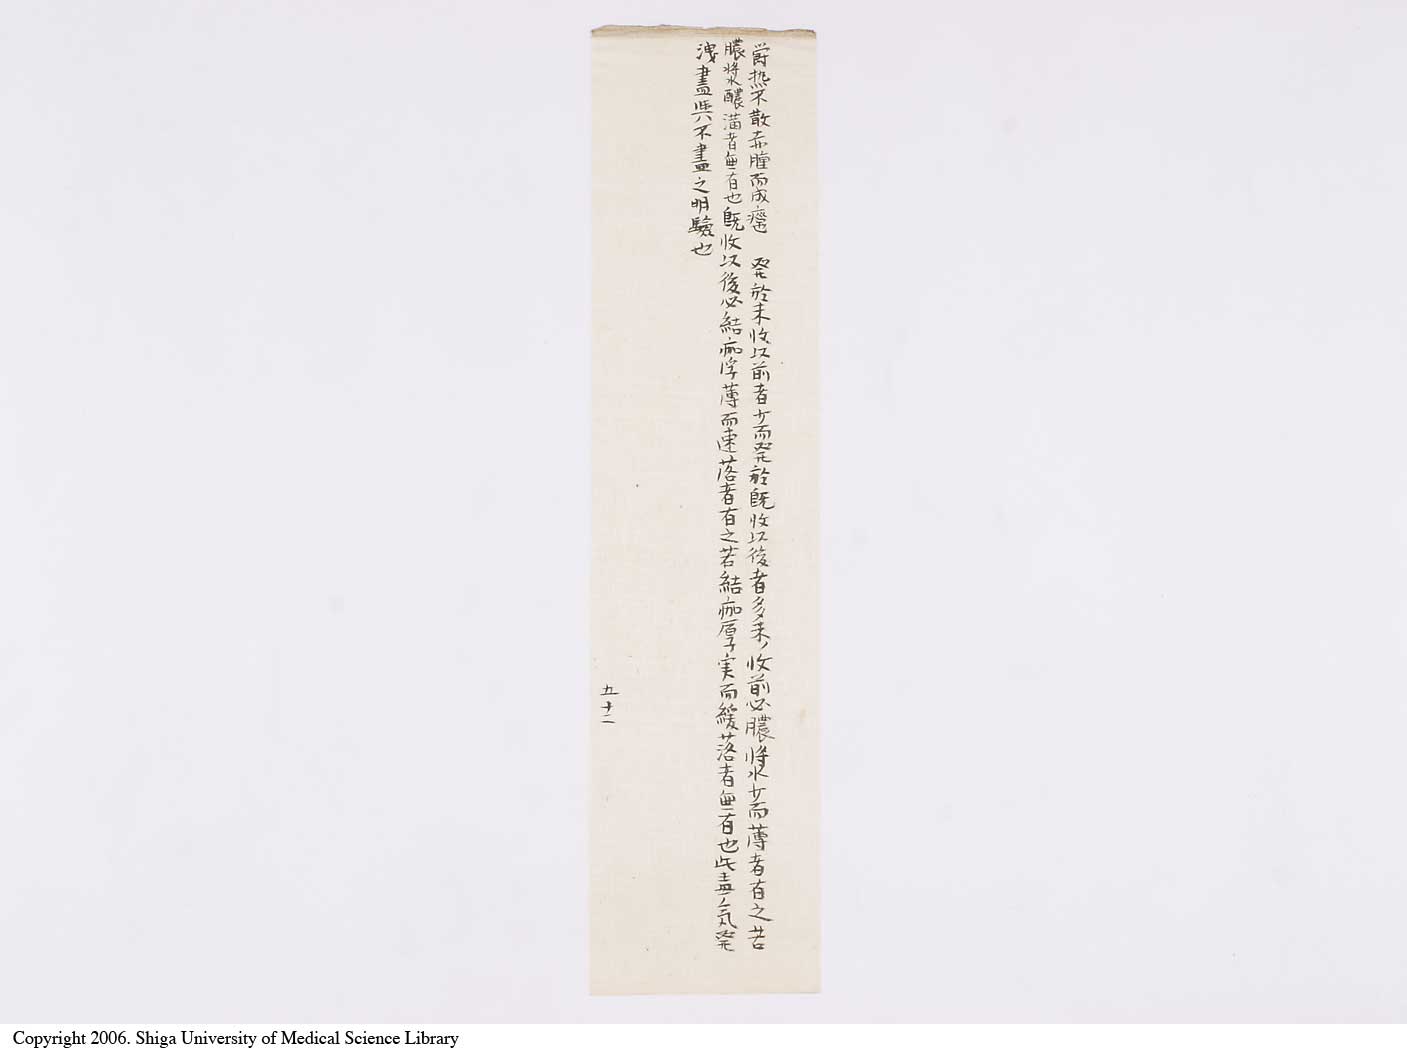 欝热不散赤腫而成癰也　発於未收以前者少而発於既收以後者多未收前必膿將水少而薄者有之若
膿漿醲満者無有也既收以後必結痂浮薄而速落者有之若結痂厚実而緩落者無有也此毒氣発
洩盡與不盡之明驗也
五十二
Copyright 2006. Shiga University of Medical Science Library